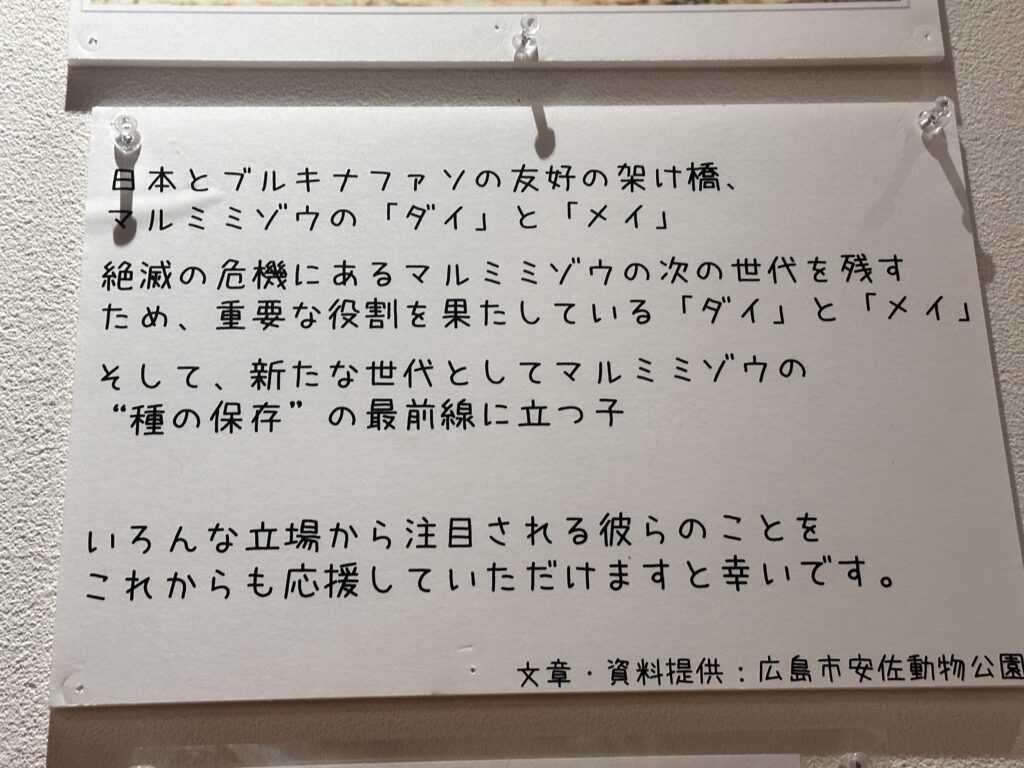 日本とブルキナファソの友好の架け橋、
マルミミゾウの「ダイ」と「メイ」
絶滅の危機にあるマルミミゾウの次の世代を残す
ため、重要な役割を果たしている「ダイ」と「メイ」
そして、新たな世代としてマルミミゾウの
“種の保存”の最前線に立つ子
いろんな立場から注目される彼らのことを
これからも応援していただけますと幸いです。
文章・資料提供：広島市安佐動物公園